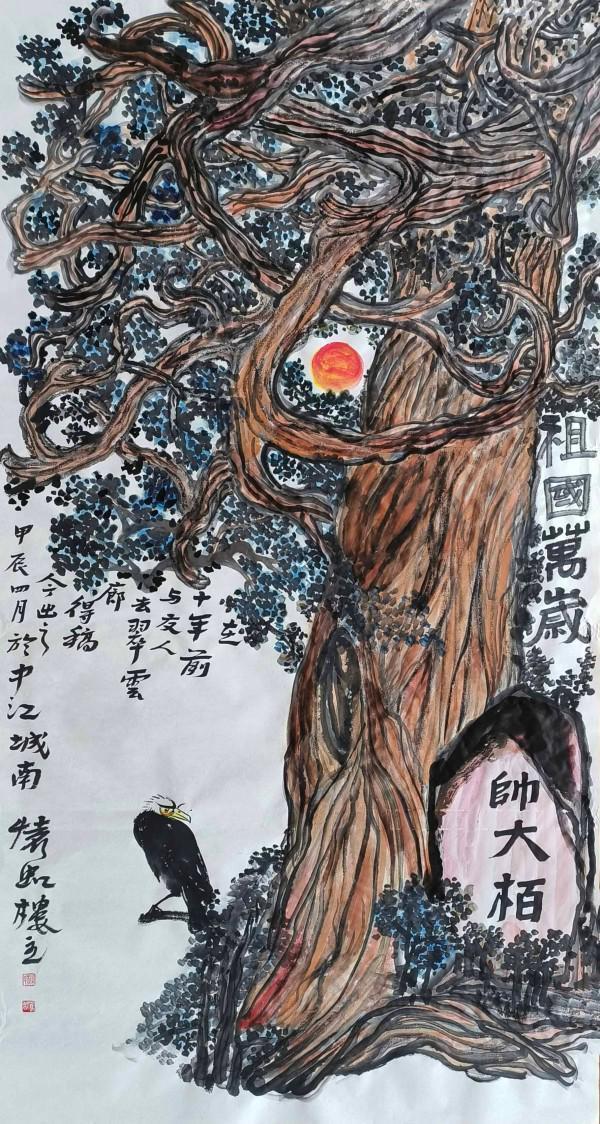 祖國萬歳
帥大栢
在
十年前
与友人
去翠雲
廊
得稿
今
甲辰四月於中江城南
虹樓主